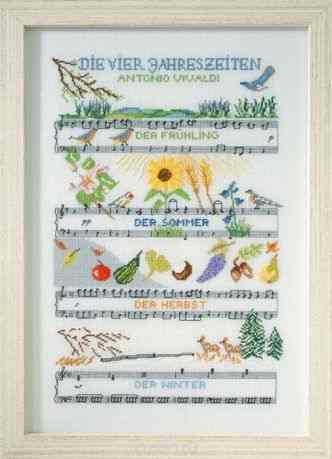 DIE VIER JAHRESZEITEN
ANTONIO VIVALDI
DER FRÜHLING
DER SOMMER
DER HERBST
DER WINTER